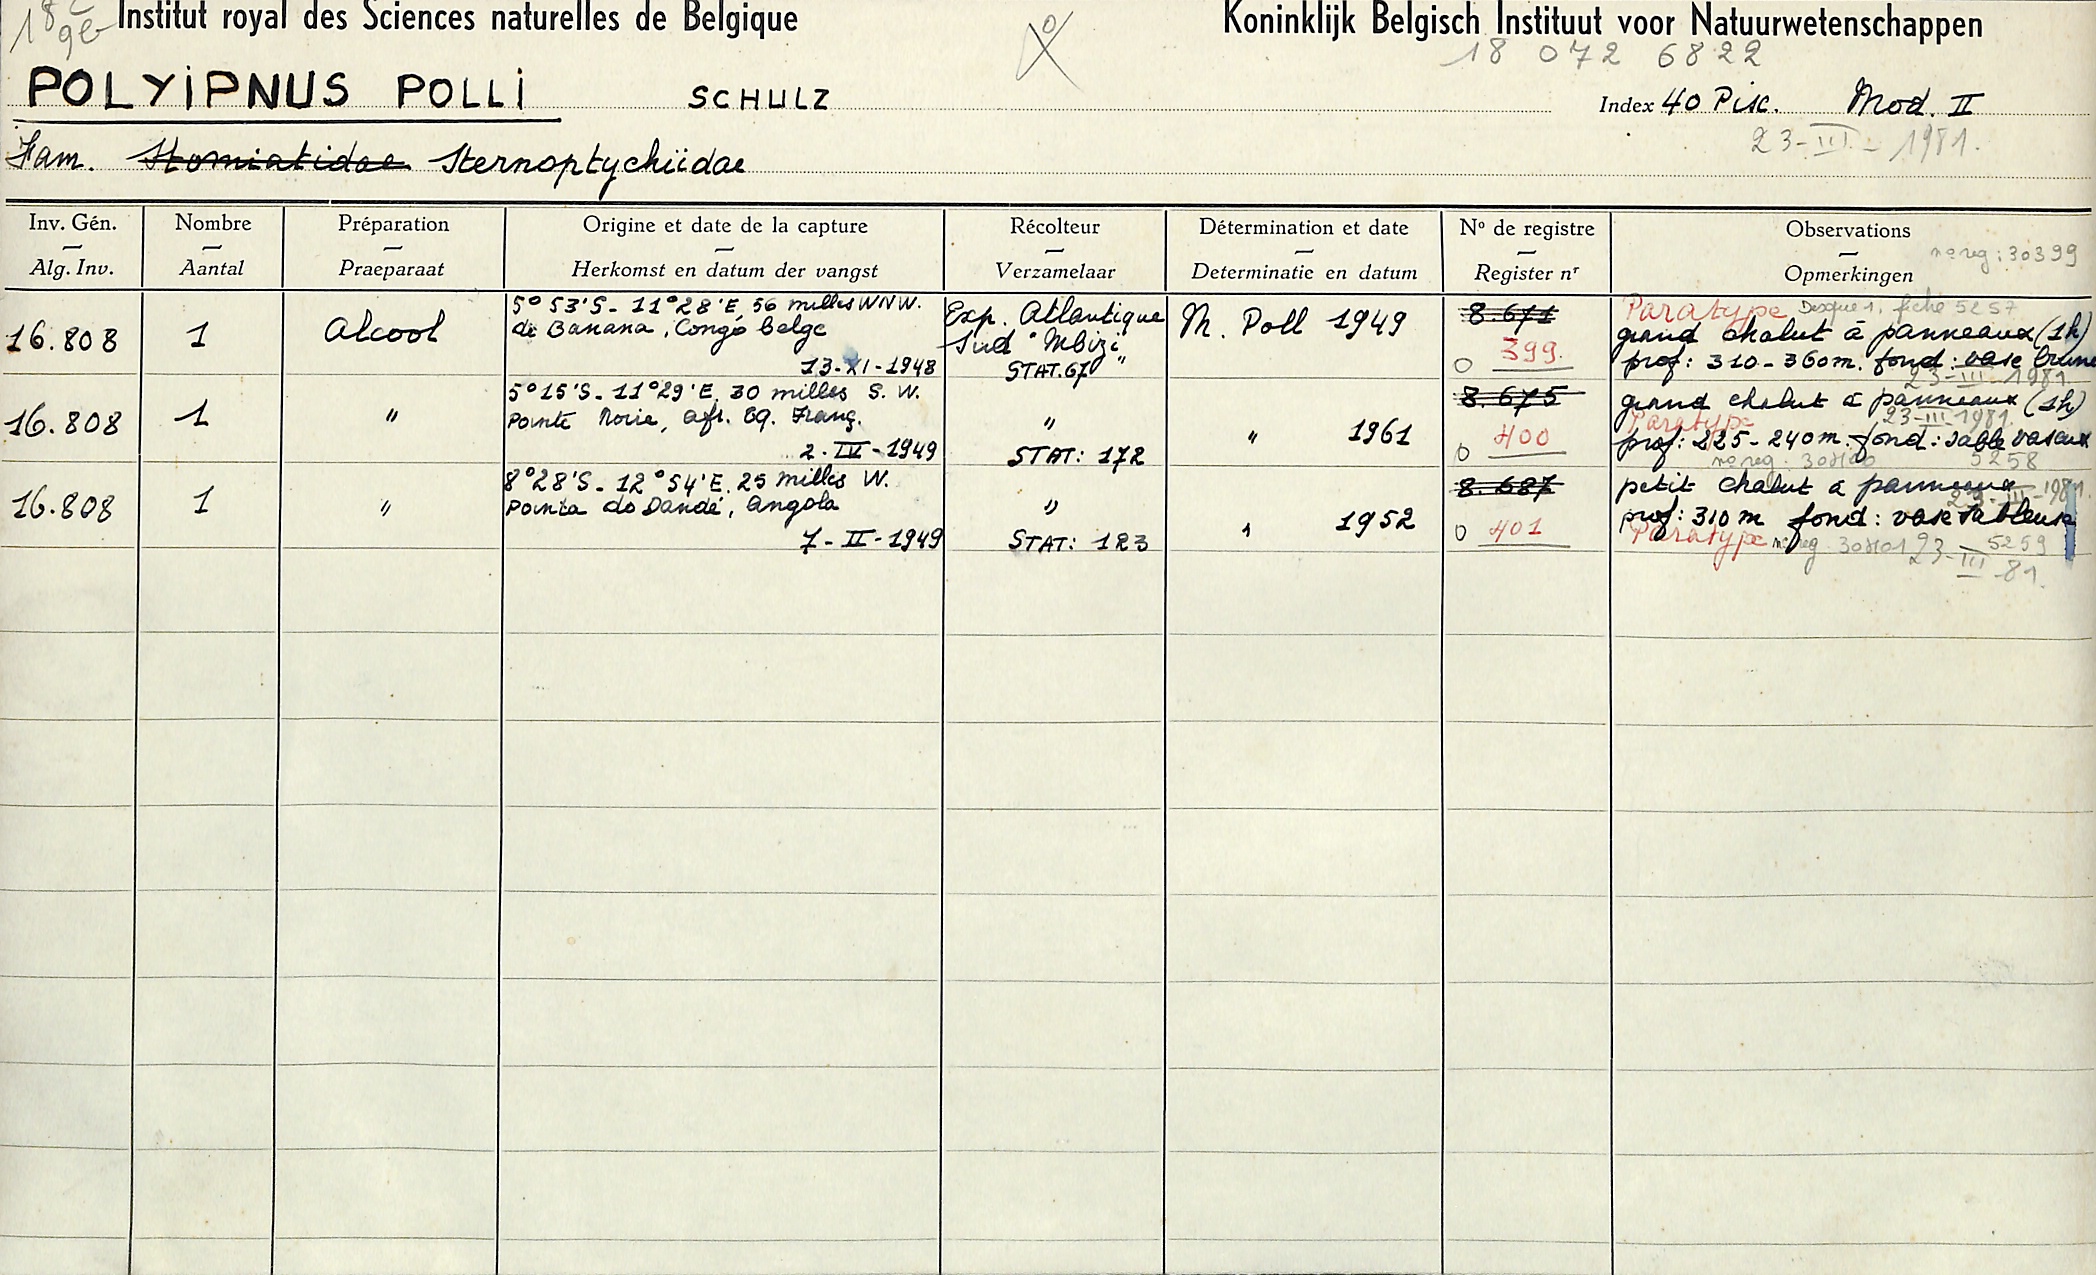 Institut royal des Sciences naturelles de Belgique
Koninklijk Belgisch Instituut voor Natuurwetenschappen
18 072 6822
POLYIPNUS POLLI SCHULZ
Index 40 Pisc. Mod. II
23-III-1981.
Fam. Stomiatidae Sternoptychiidae
Inv. Gén. — Alg. Inv.
Nombre — Aantal
Préparation — Praeparaat
Origine et date de la capture — Herkomst en datum der vangst
Récolteur — Verzamelaar
Détermination et date — Determinatie en datum
No de registre — Register nr
Observations — Opmerkingen
no reg: 30399
16.808
1
Alcool
5°53'S - 11°28'E, 56 milles WNW.
de Banana, Congo belge
13-XI-1948
Exp. Atlantique
Sud "Mbizi"
STAT. 67
M. Poll 1949
8.671
0 399.
Paratype Disque 1, fiche 5257
grand chalut à panneaux (1h)
prof: 310-360m. fond: vase brune
23-III-1981.
16.808
1
"
5°15'S - 11°29'E, 30 milles S.W.
Pointe Noire, Afr. Eq. Franç.
2-IV-1949
"
STAT: 172
" 1961
8.675
0 400
grand chalut à panneaux (1h)
Paratype 23-III-1981.
prof: 225-240m. fond: sable vaseux
no reg. 30400 5258
16.808
1
"
8°28'S - 12°54'E, 25 milles W.
Ponta do Dande, Angola
7-II-1949
"
STAT: 123
" 1952
8.687
0 401
petit chalut à panneaux
23-III-1981.
prof: 310m fond: vase sableuse
Paratype no reg 30401 5259
23-III-81.